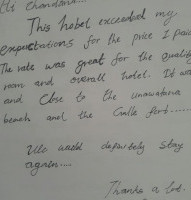 Hi Chandana...
This hotel exceeded my
expectations for the price I paid
The rate was great for the quality
room and overall hotel. It was
and close to the unawatuna
beach and the Galle fort.......
We would definitely stay
again.....
Thanks a lot.